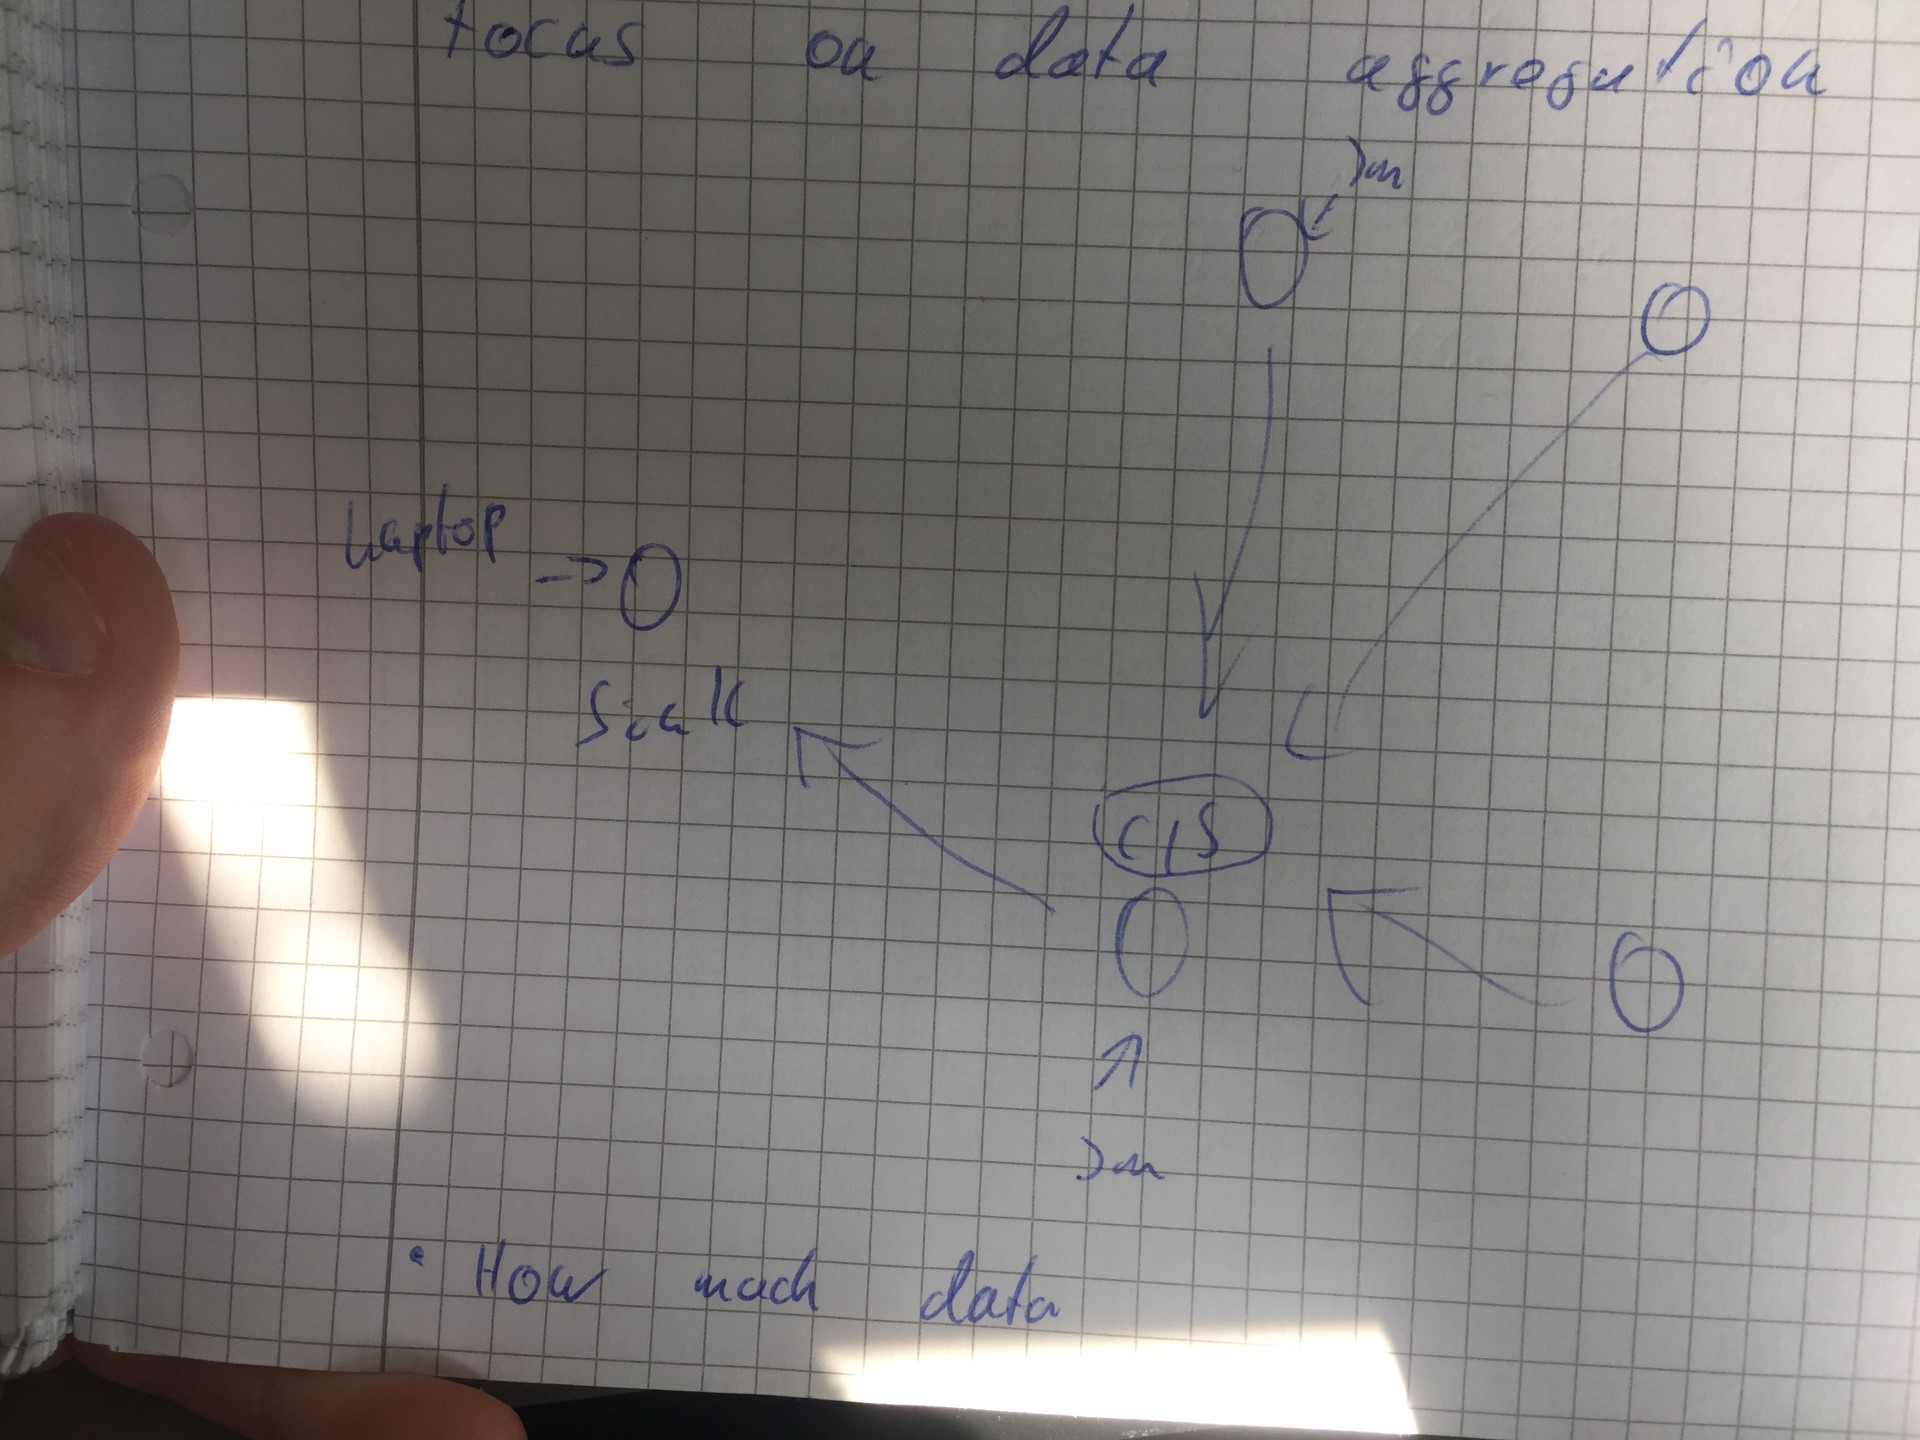 focus on data aggregation
Laptop
Sink
How much data